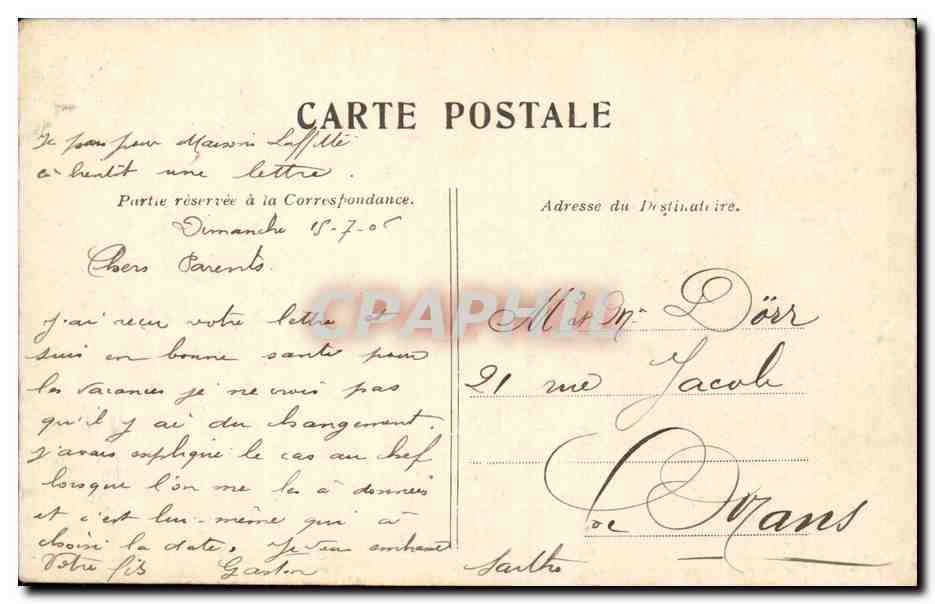 CARTE POSTALE
Je pars pour Maisons Laffitte
à bientôt une lettre.
Partie réservée à la Correspondance.
Adresse du Destinataire.
Dimanche 15-7-06
Chers Parents.
J'ai reçu votre lettre et
suis en bonne santé pour
les vacances je ne crois pas
qu'il y ai du changement.
J'avais expliqué le cas au chef
lorsque l'on me les à données
et c'est lui-même qui à
choisi la date. Je vous embrasse
Votre fils Gaston
M et Me Dörr
21 rue Jacob
Le Mans
Sarthe
CPAPHIL